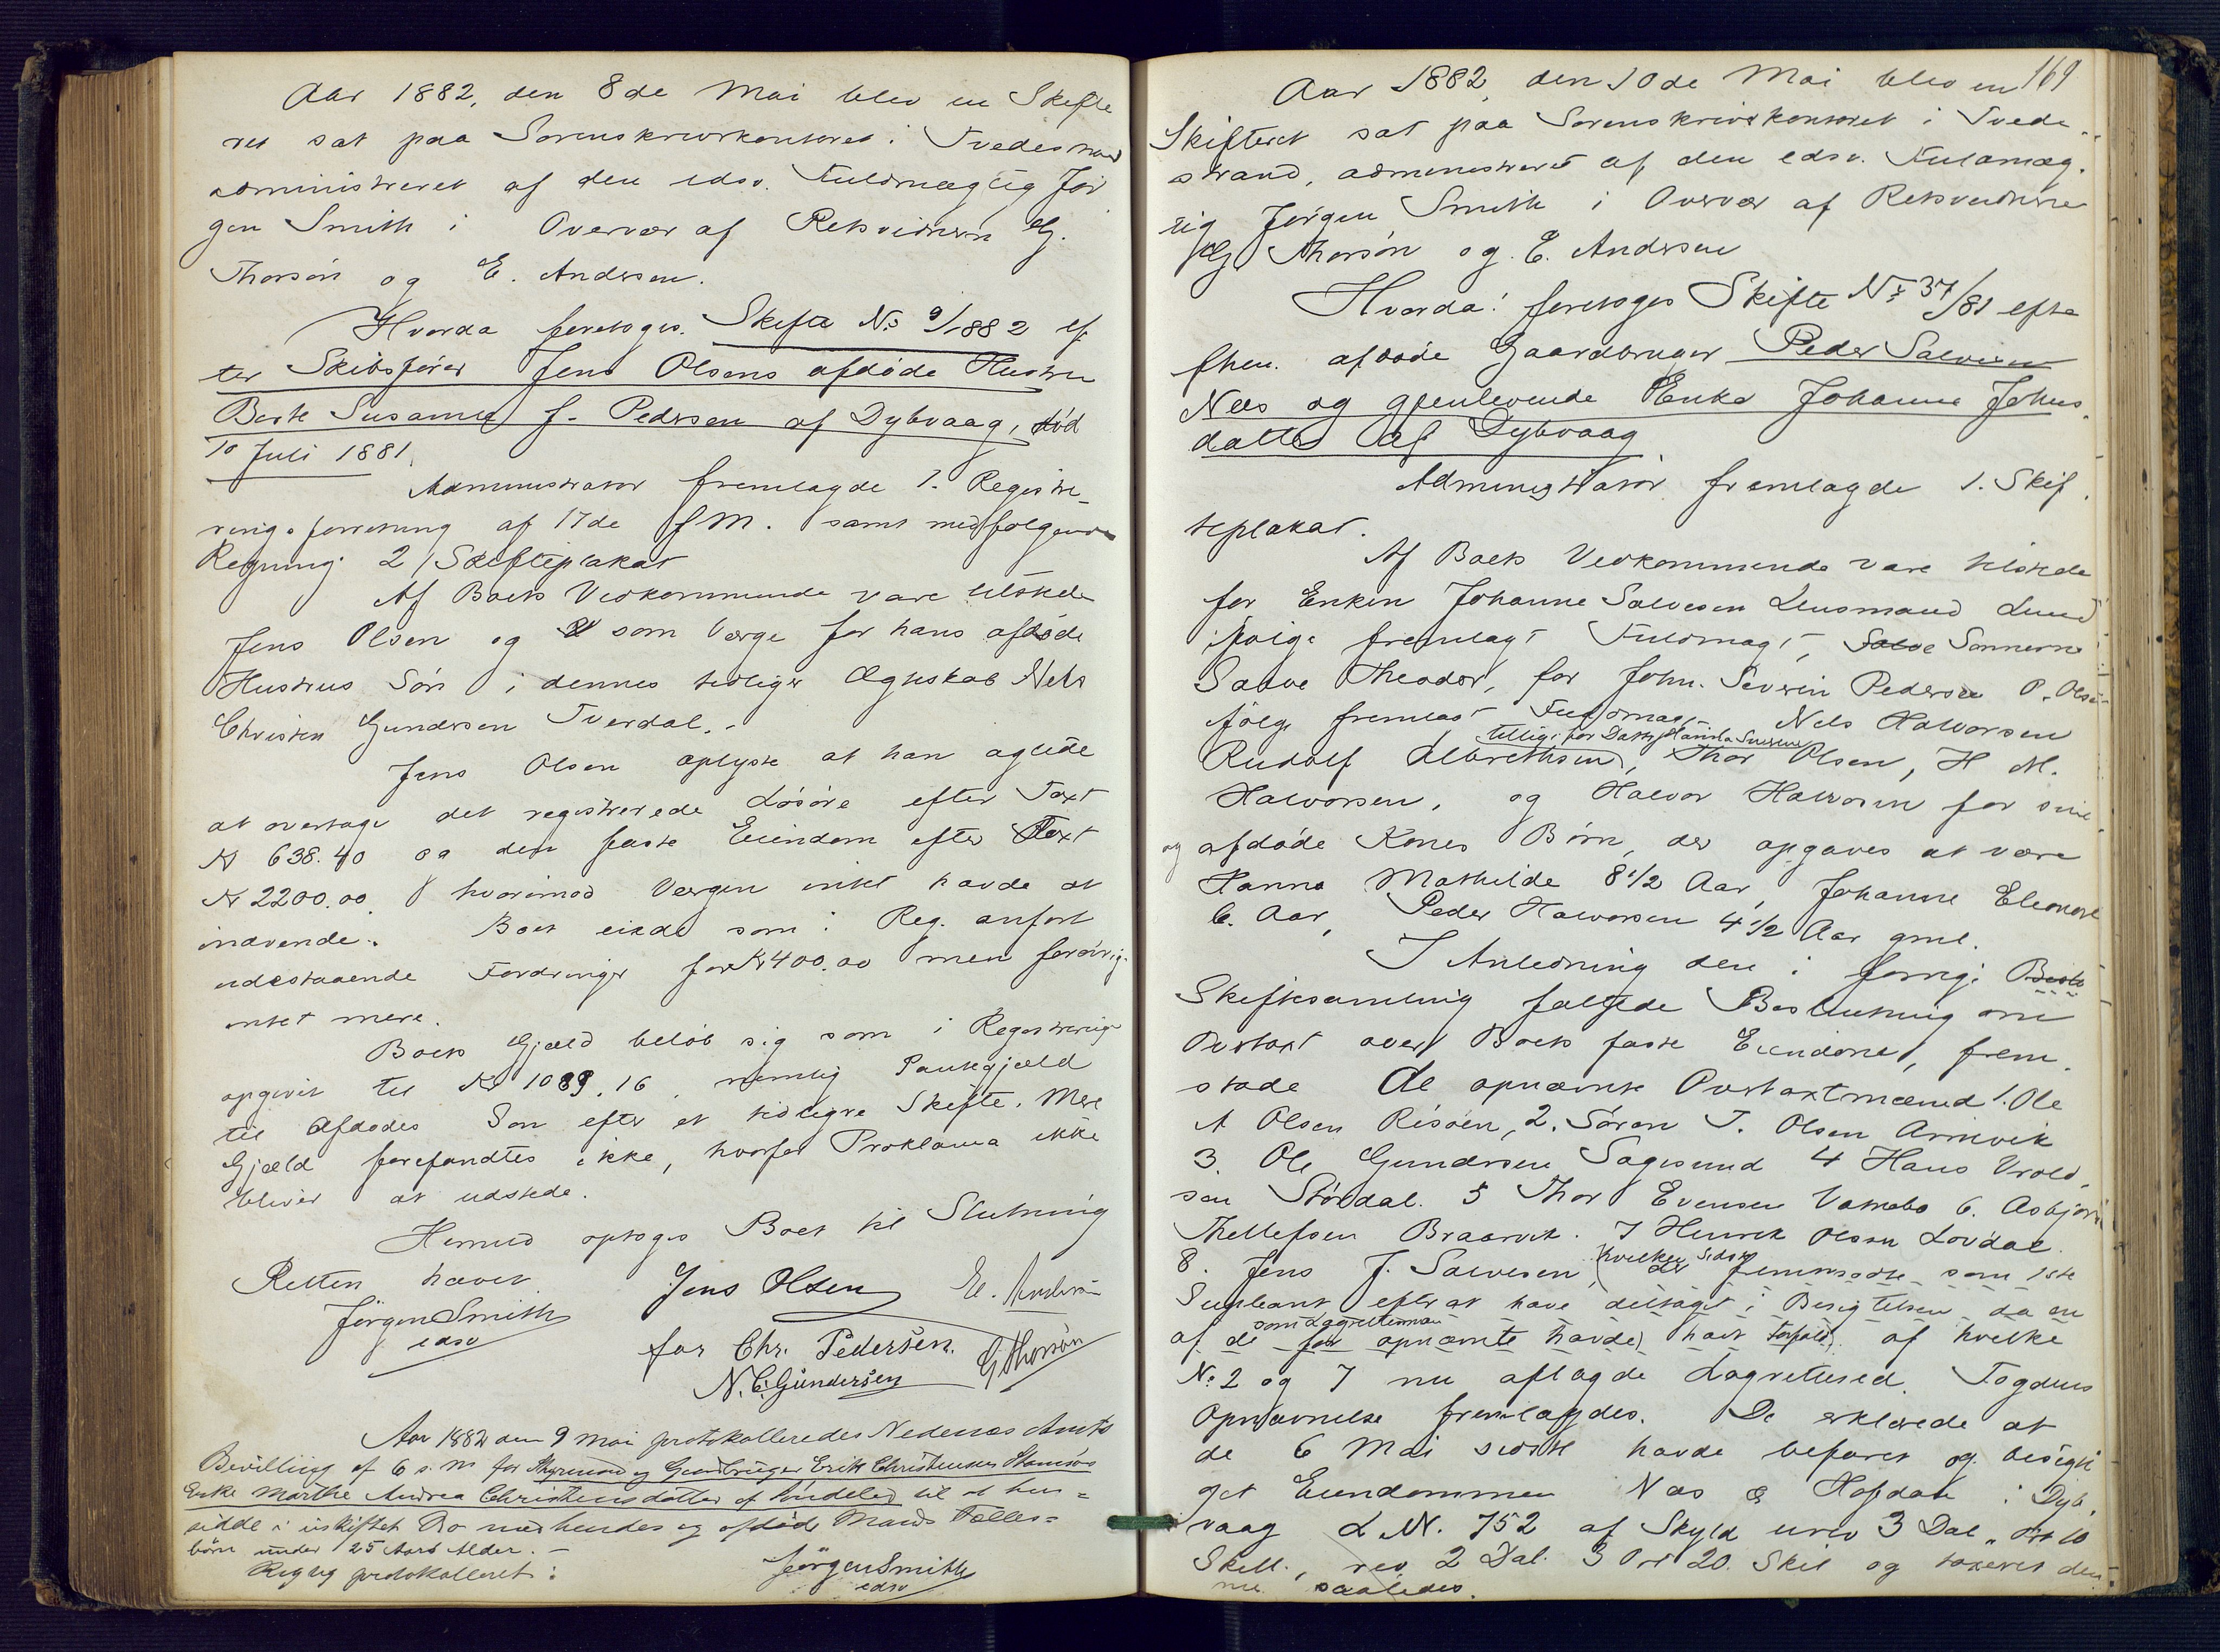 Aar 1882, den 8de Mai blev en Skifte
ret sat paa Sorenskriverkontoret i Tvedestrand
administreret af den edsv. Fuldmægtig Jør
gen Smith i Overvær af Retsvidnerne G.
Thorsön og E. Andersen.
Hvorda foretoges. Skifte No 9/1882 ef
ter Skibsfører Jens Olsens afdøde Hustru
Berte Susanne f. Pedersen af Dybvaag, død
10 Juli 1881.
Administrator fremlagde 1. Registre-
ringsforretning af 17de f M. samt medfølgende
Regning 2 Skifteplakat
Af Boets Vedkommende vare tilstede
Jens Olsen og som Værge for hans afdøde
Hustrus Søn i dennes tidligere Ægteskab Nels
Christen Gundersen Tverdal.
Jens Olsen oplyste at han agtede
at overtage det registrerede Løsøre efter Taxt
Kr 638.40 og den faste Eiendom efter Taxt
Kr 2200.00 hvorimod Værgen intet havde at
indvende. Boet eiede som i Reg. anført
udestaaende Fordringer for Kr 400.00 men forøvrig
intet mere.
Boets Gjæld beløb sig som i Registrering
opgivet til Kr 1089.16 nemlig Pantegjæld
til Afdødes Søn efter et tidligere Skifte. Mere
Gjæld forefandtes ikke, hvorfor Proklama ikke
bliver at udstede.
Hermed optoges Boet til Slutning
Retten hævet
Jörgen Smith Jens Olsen E. Andersen
edsv
for Chr. Pedersen. G Thorsön
N. C. Gundersen
Aar 1882 den 9 Mai protokolleredes Nedenæs Amts
Bevilling af 6 s. M for og Gaardbruger Erik Christensen
Enke Marthe Andrea Christensdatter af Söndeled til at hen=
sidde i uskiftet Bo med hendes og afdøde Mands Fælles=
børn under 25 Aars Alder. –
Rigtig protokolleret:
Jörgen Smith
edsv
169
Aar 1882, den 10de Mai blev en
Skifteret sat paa Sorenskriverkontoret i Tvede-
strand, administreret af den edsv. Fuldmæg-
tig Jørgen Smith i Overvær af Retsvidnerne
G. Thorsön og E. Andersen
Hvorda: foretoges Skifte No 37/81 efter
afdøde Gaardbruger Peder Salvesen
Næs og gjenlevende Enke Johanne Johns-
datter af Dybvaag
Administrator fremlagde 1. Skif-
teplakat.
Af Boets Vedkommende vare tilstede
for Enken Johanne Salvesen Lensmand Lund
ifølge fremlagt Fuldmagt, Salve Sønnerne
Salve Theodor, for John Severin Pedersen O. Olsen
ifølge fremlagt Fuldmagt Nels Halvorsen
tillige for Datter
Rudolf Albrethsen, Thor Olsen, H M.
Halvorsen, og Halvor Halvorsen for sine
og afdøde Kones Børn, der opgaves at være
Hanna Mathilde 8 1/2 Aar, Johanne Eleonore
6. Aar, Peder Halvorsen 4 1/2 Aar gml.
I Anledning den i forrige Beslu
Skiftesamling fattede Beslutning om
Ovtaxt over Boets faste Eiendom, frem-
stode de opnævnte Ovtaxtmænd 1. Ole
A Olsen Risøen, 2. Søren T. Olsen Arnevik
3. Ole Gundersen Sagesund 4 Hans Vrold-
sen Stördal. 5 Thor Evensen Vatnebo 6. Asbjørn
Thellefsen Braarvik. 7 Henrik Olsen Lövdal.
8. Jens J. Salvesen, hvilken sidste der fremmødte som 1ste
Supleant efter at have deltaget i Besigtelsen da en
som Lagrettemænd
af de før opnævnte havde havt Forfald. af hvilke
No 2 og 7 nu aflagde Lagretteed. Fogdens
Opnævnelse fremlagdes. De erklærede at
de 6 Mai sidste havde befaret og besigti
get Eiendommen Næs & Hopdal i Dyb-
vaag L M. 752 af Skyld urev 3 Dal „ Ort 10
Skill., rev 2 Dal. 3 Ort 20. Skil og taxeret den
nu saaledes.